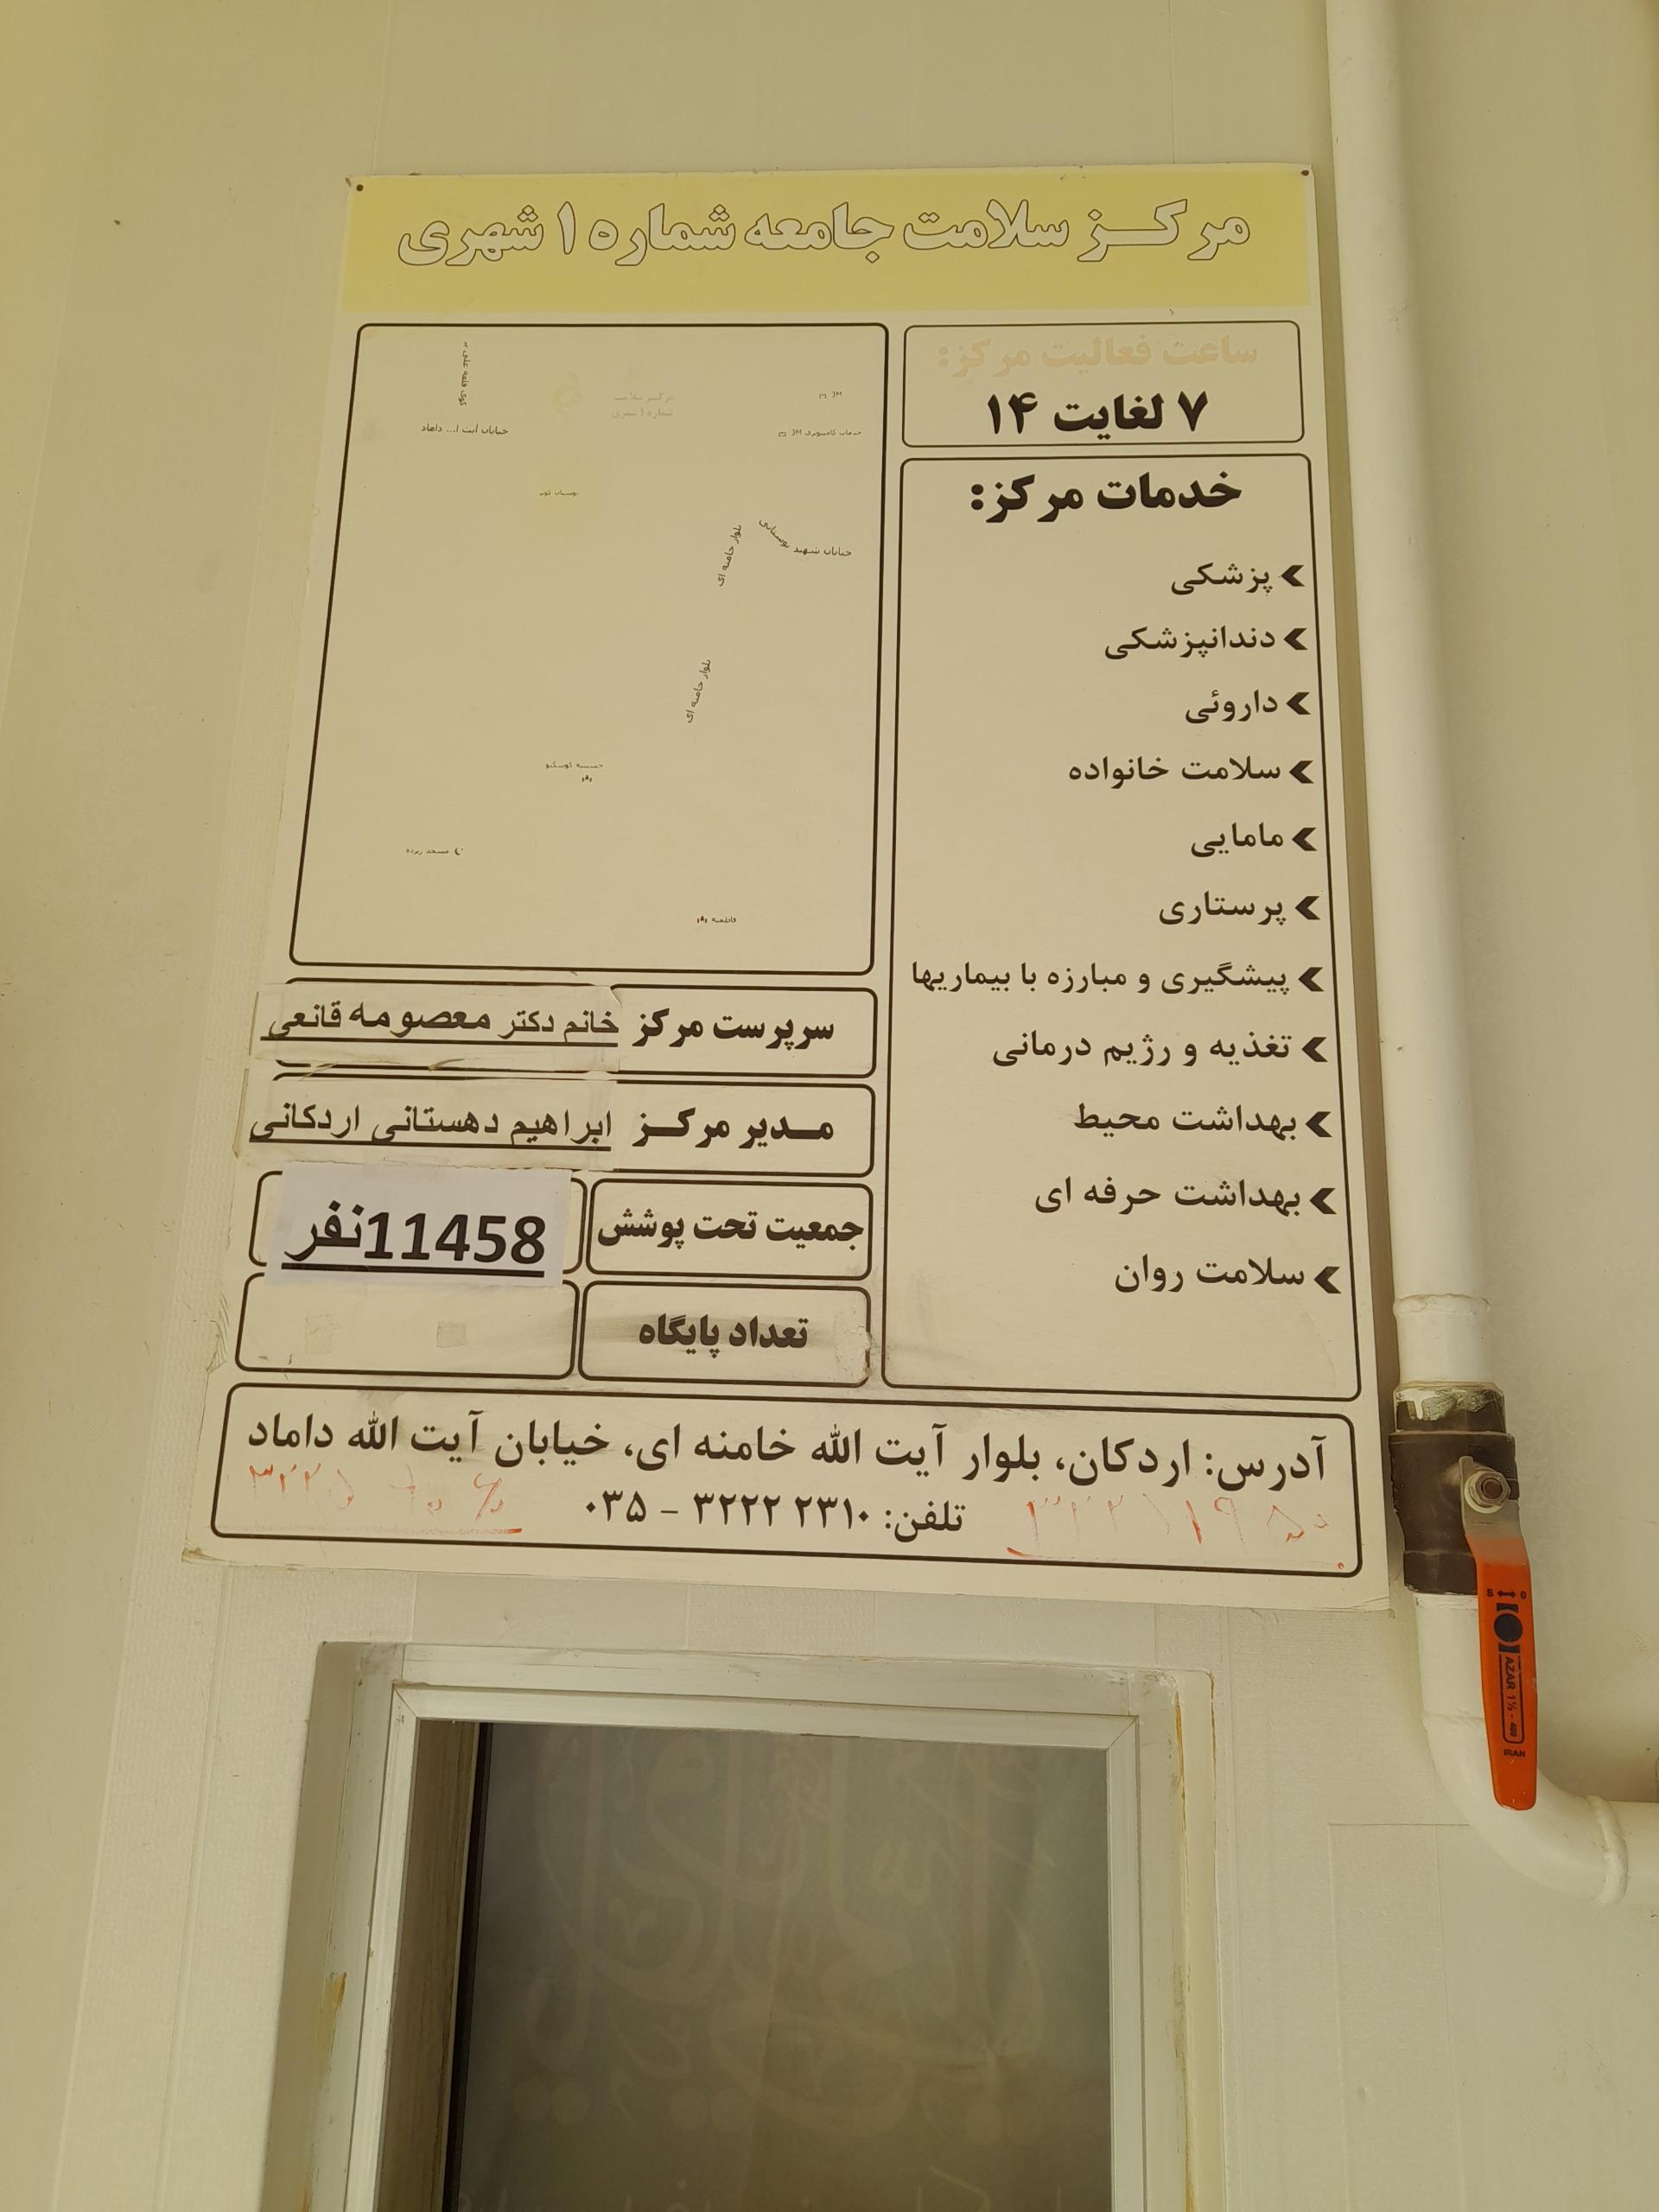 مرکز سلامت جامعه شماره ۱ شهری
ساعت فعالیت مرکز:
۷ لغایت ۱۴
خدمات مرکز:
پزشکی
دندانپزشکی
داروئی
سلامت خانواده
مامایی
پرستاری
پیشگیری و مبارزه با بیماریها
تغذیه و رژیم درمانی
بهداشت محیط
بهداشت حرفه ای
سلامت روان
مرکز سلامت
شماره ۱ شهری
3M
خدمات کامپیوتری 3M
خیابان آیت ا... داماد
خیابان شهید بوستانی
بلوار خامنه ای
بلوار خامنه ای
فاطمیه
سرپرست مرکز خانم دکتر معصومه قانعی
مدیر مرکز ابراهیم دهستانی اردکانی
جمعیت تحت پوشش 11458نفر
تعداد پایگاه
آدرس: اردکان، بلوار آیت الله خامنه ای، خیابان آیت الله داماد
تلفن: ۲۳۱۰ ۳۲۲۲ - ۰۳۵
S O
AZAR 1½ - 400
IRAN